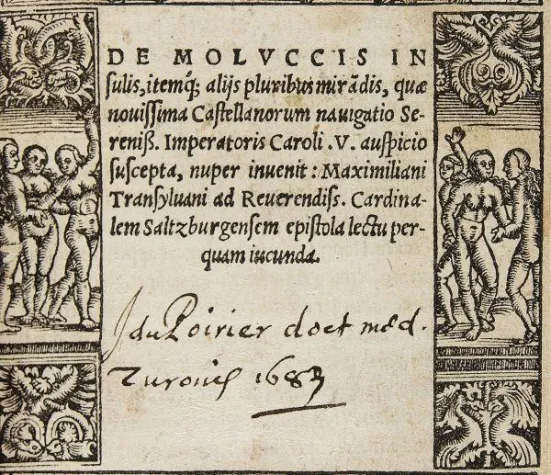 DE MOLVCCIS IN
sulis, itemq́; alijs pluribus mirādis, quæ
nouissima Castellanorum nauigatio Se-
reniß. Imperatoris Caroli .V. auspicio
suscepta, nuper inuenit: Maximiliani
Transyluani ad Reuerendiss. Cardina-
lem Saltzburgensem epistola lectu per-
quam iucunda.
J du Poirier doct med.
Turonis 1683